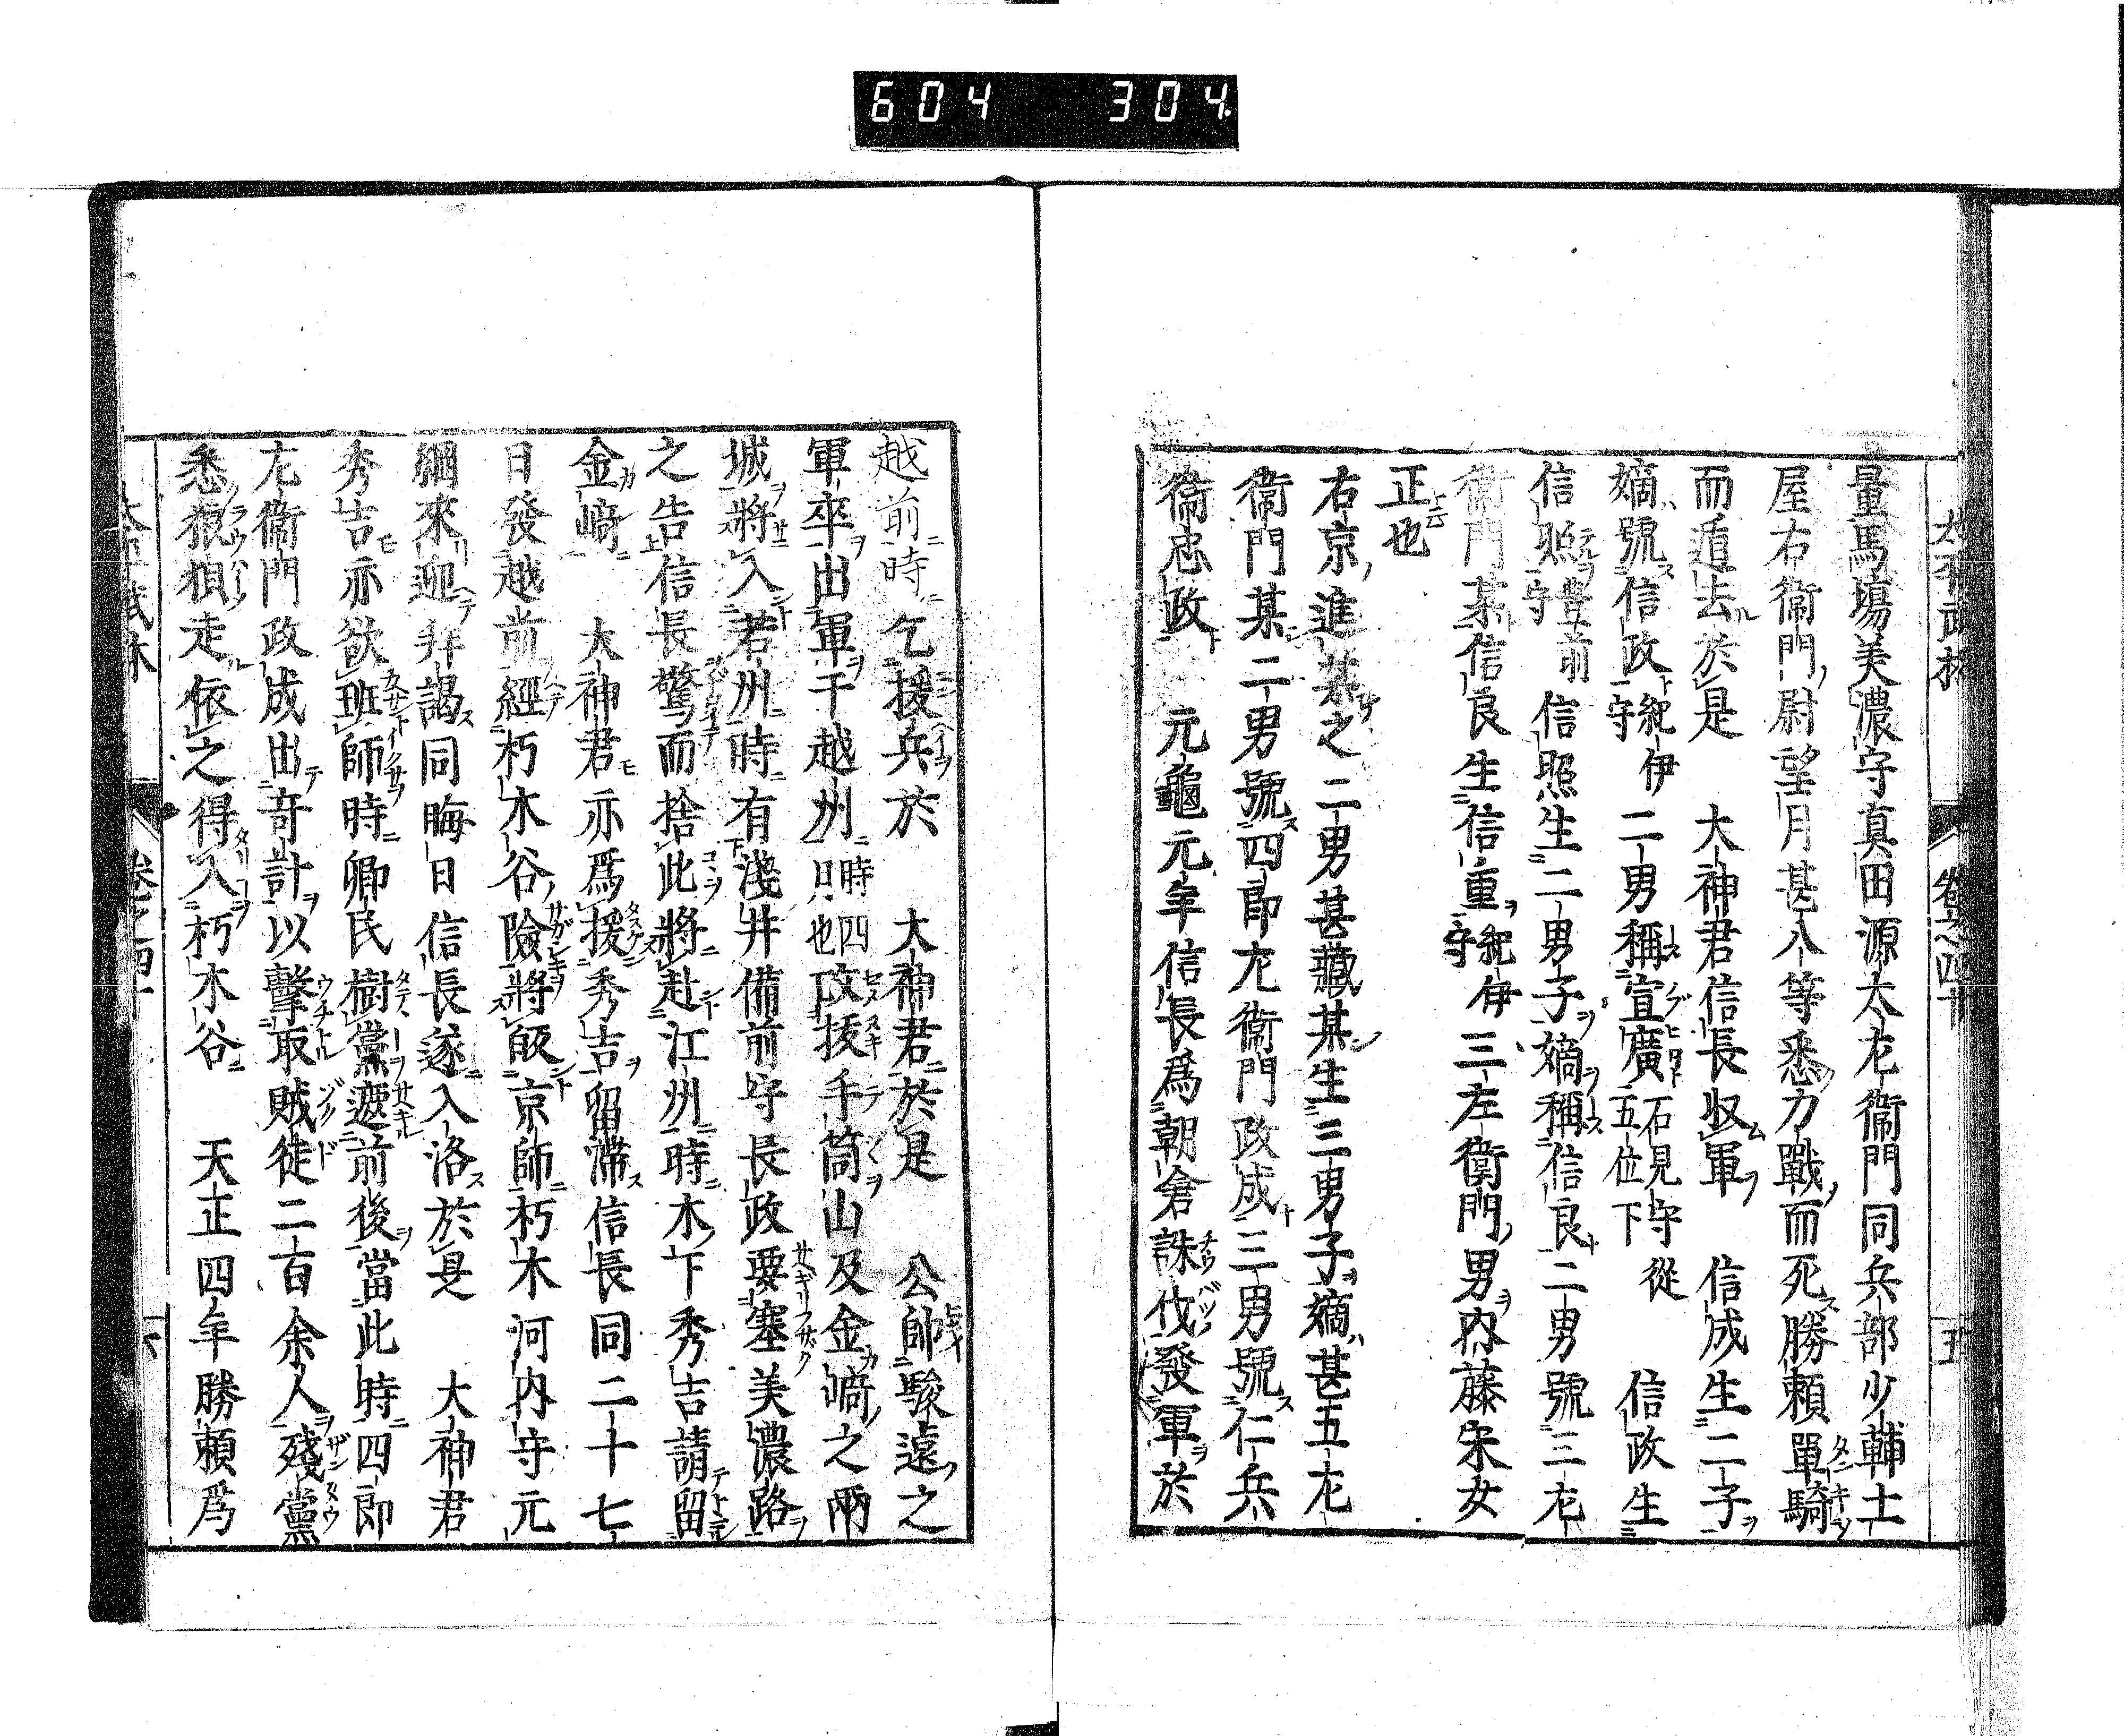 604 304
太平武林 卷之四十 五
量馬塲美濃守真田源太左衞門同兵部少輔土
屋右衞門尉望月甚八等悉力戰而死勝賴單騎
而遁去於是 大神君信長収軍 信成生二子
嫡號信政紀伊守二男稱宣廣石見守從五位下 信政生
信照豐前守 信照生二男子嫡稱信良二男號三左
衞門某信良生信重紀伊守三左衞門男内藤宋女
正也
右京進某之二男甚藏某生三男子嫡甚五左
衞門某二男號四郎左衞門政成三男號仁兵
衞忠政 元龜元年信長爲朝倉誅伐發軍於
越前時乞援兵於 大神君於是 公帥駿遠之
軍卒出軍于越州時四月也攻拔手筒山及金﨑之兩
城將入若州時有淺井備前守長政要塞美濃路
之告信長驚而捨此將赴江州時木下秀吉請留
金﨑 大神君亦爲援秀吉留滯信長同二十七
日發越前經朽木谷險將皈京師朽木河内守元
綱來迎拜謁同晦日信長遂入洛於是 大神君
秀吉亦欲班師時鄉民樹黨遮前後當此時四郎
左衞門政成出奇計以擊取賊徒二百余人殘黨
悉狼狽走依之得入朽木谷 天正四年勝賴爲
卷之四十 六